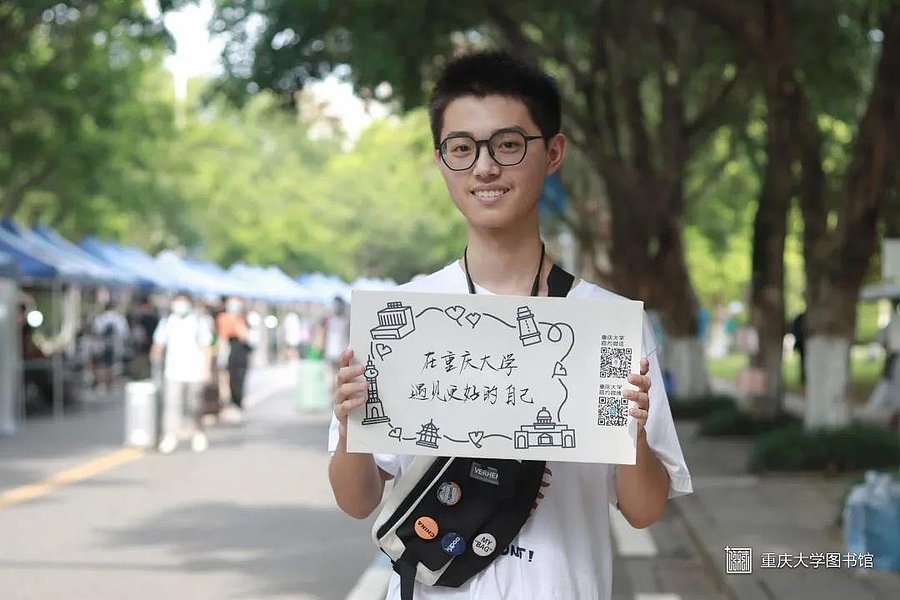 在重庆大学
遇见更好的自己
重庆大学
官方微信
重庆大学
官方微博
VERHEI
CHINA
MY
"BAG"
ONT!
重庆大学图书馆